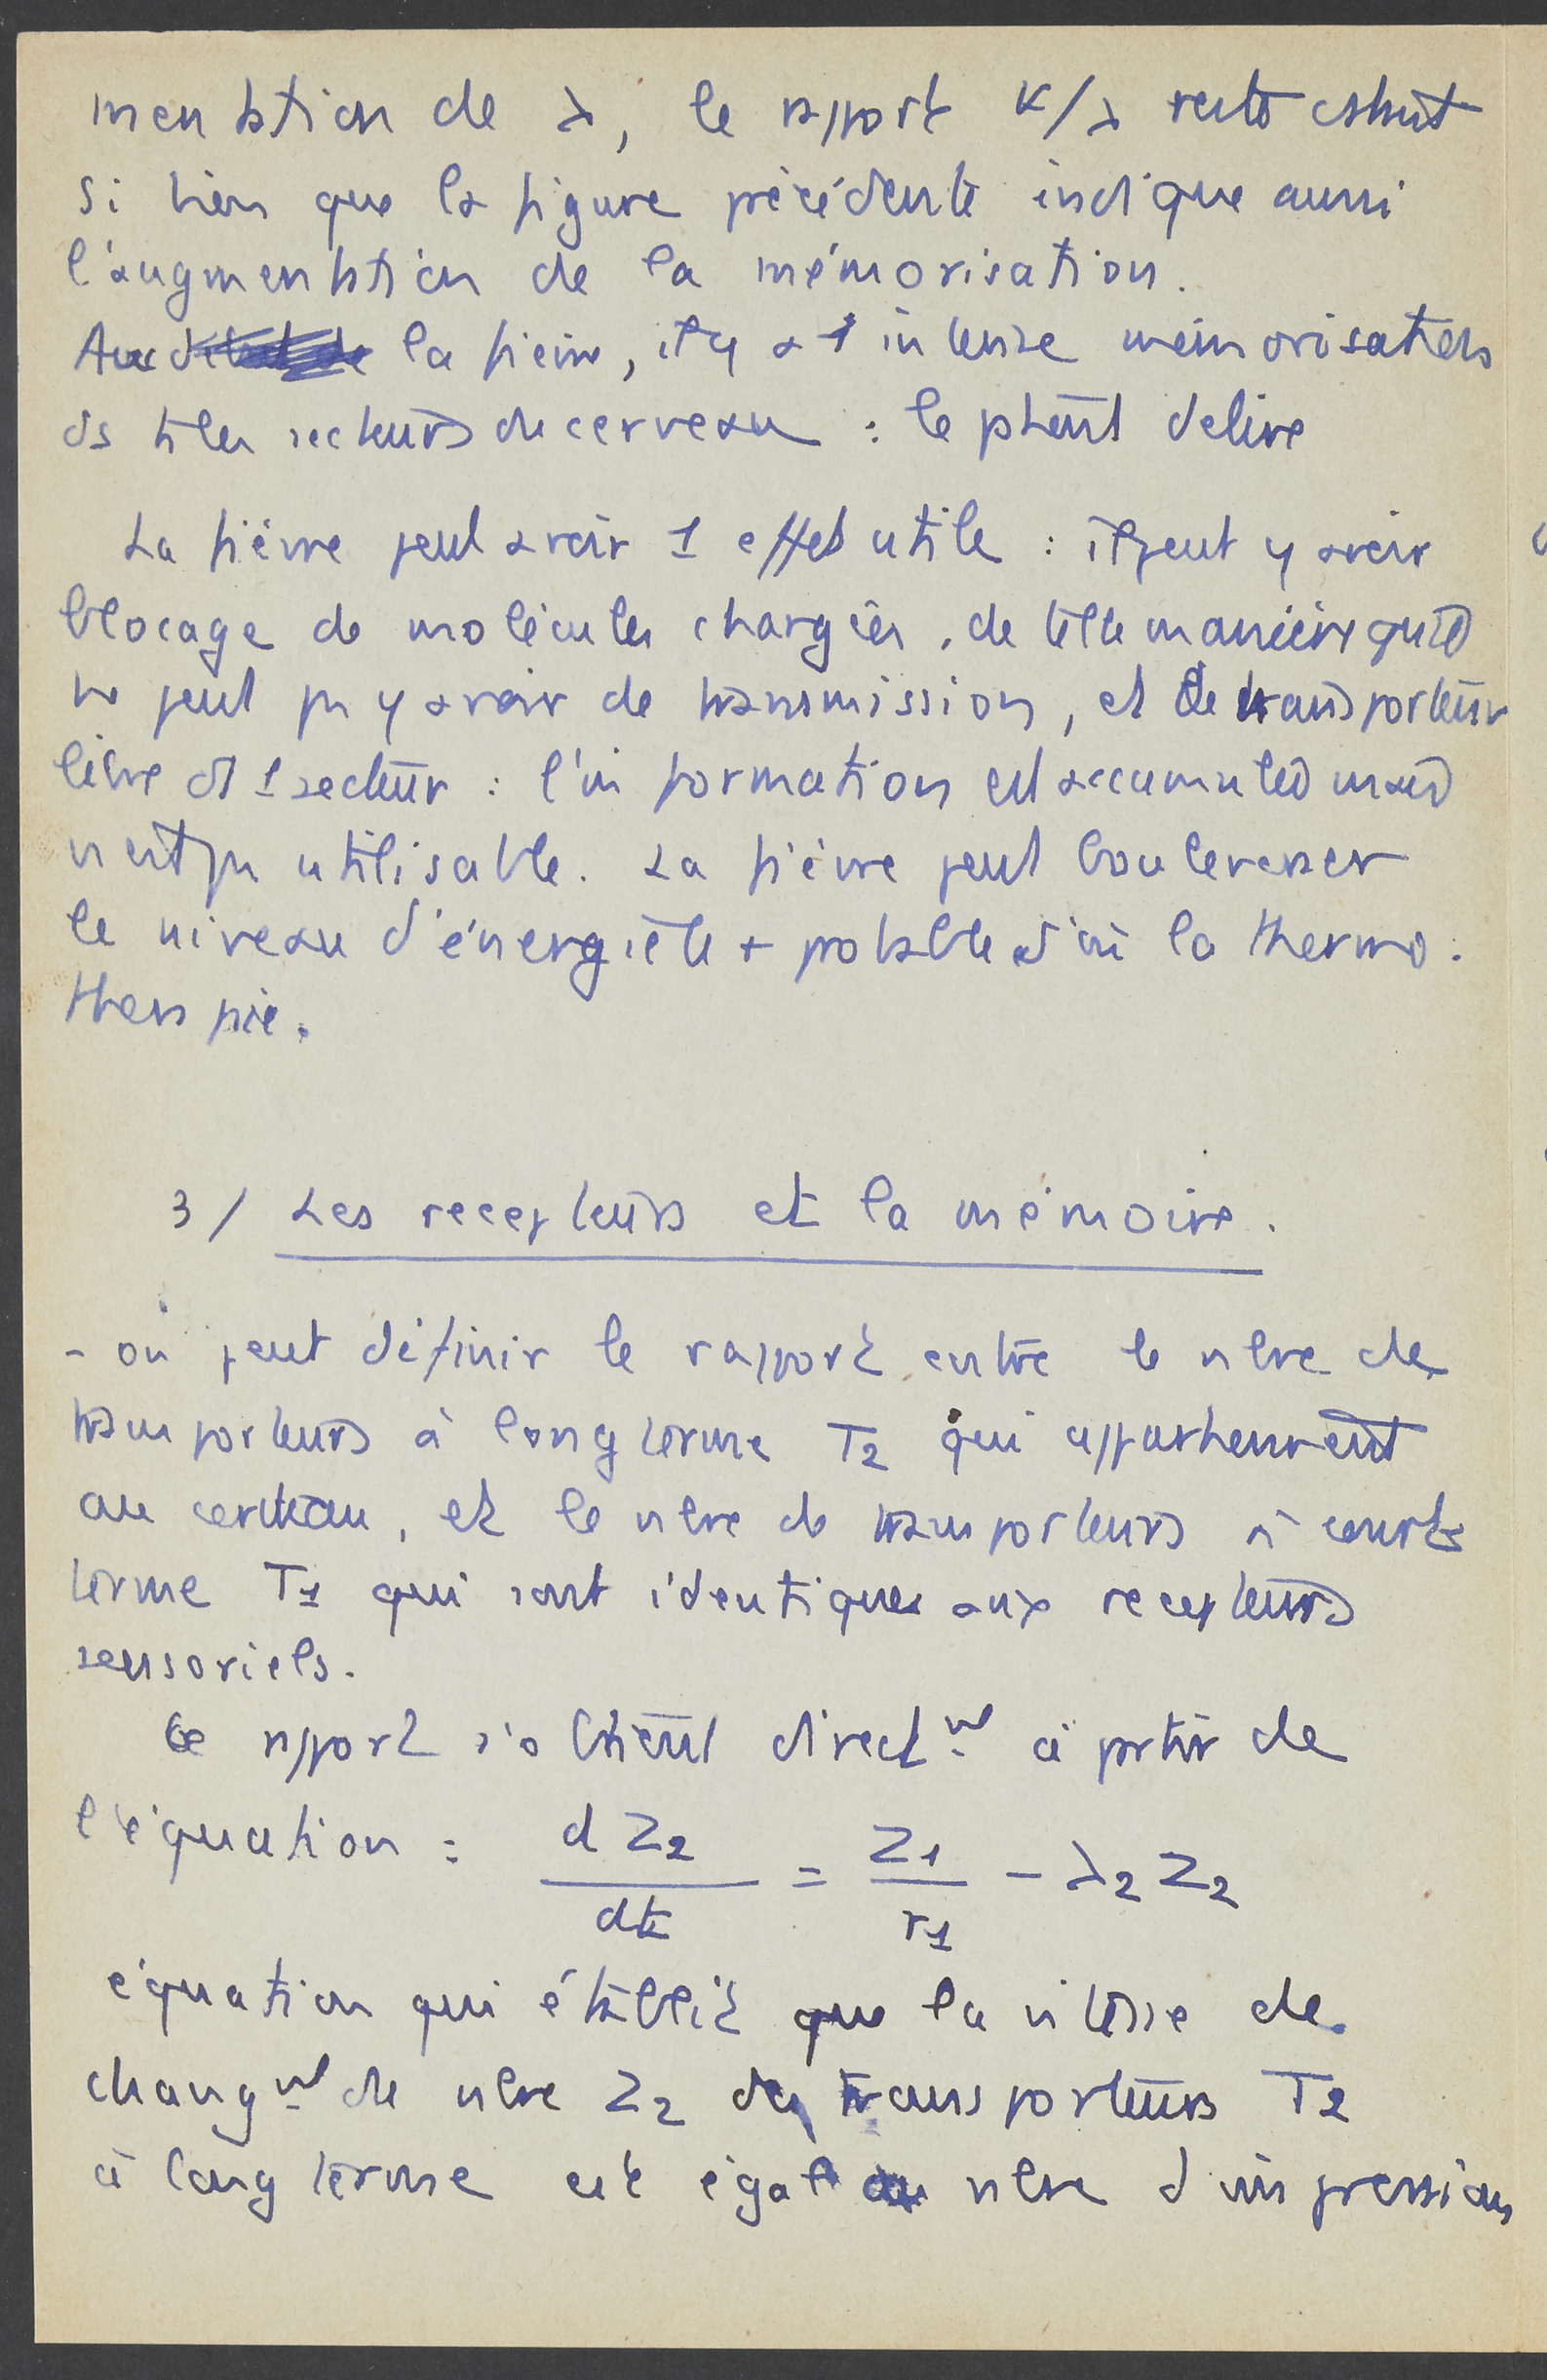 mentation de λ, le rapport K/λ reste constant
si bien que la figure précédente indique aussi
l'augmentation de la mémorisation.
Avec la fièvre, il y a 1 intense mémorisation
ds ts les secteurs du cerveau : le patient délire
La fièvre peut avoir 1 effet utile : il peut y avoir
blocage de molécules chargées, de telle manière qu'il
ne peut pas y avoir de transmission, et de transporteur
libre ds 1 secteur : l'information est accumulée mais
n'est pas utilisable. La fièvre peut bouleverser
le niveau d'énergie le + probable d'où la thermo-
thérapie.
3/ Les récepteurs et la mémoire.
- on peut définir le rapport entre le nbre de
transporteurs à long terme T2 qui appartiennent
au cerveau, et le nbre de transporteurs à court
terme T1 qui sont identiques aux récepteurs
sensoriels.
Ce rapport s'obtient direct^nt à partir de
l'équation : dZ2/dt = Z1/r1 - λ2 Z2
équation qui établit que la vitesse de
chang^nt de nbre Z2 des transporteurs T2
à long terme est égal au nbre d'impressions